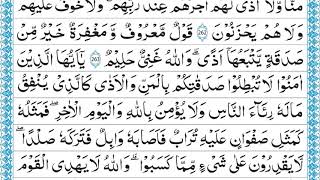 مَنًّا وَّلَاۤ اَذًى ۙ لَّهُمْ اَجْرُهُمْ عِنْدَ رَبِّهِمْ ۚ وَلَا خَوْفٌ عَلَيْهِمْ
وَلَا هُمْ يَحْزَنُوْنَ ﴿262﴾ قَوْلٌ مَّعْرُوْفٌ وَّمَغْفِرَةٌ خَيْرٌ مِّنْ
صَدَقَةٍ يَّتْبَعُهَاۤ اَذًى ؕ وَاللّٰهُ غَنِىٌّ حَلِيْمٌ ﴿263﴾ يٰۤاَيُّهَا الَّذِيْنَ
اٰمَنُوْا لَا تُبْطِلُوْا صَدَقٰتِكُمْ بِالْمَنِّ وَالْاَذٰى ۙ كَالَّذِىْ يُنْفِقُ
مَالَهٗ رِئَآءَ النَّاسِ وَلَا يُؤْمِنُ بِاللّٰهِ وَالْيَوْمِ الْاٰخِرِ ؕ فَمَثَلُهٗ
كَمَثَلِ صَفْوَانٍ عَلَيْهِ تُرَابٌ فَاَصَابَهٗ وَابِلٌ فَتَرَكَهٗ صَلْدًا ؕ
لَا يَقْدِرُوْنَ عَلٰى شَىْءٍ مِّمَّا كَسَبُوْا ؕ وَاللّٰهُ لَا يَهْدِى الْقَوْمَ